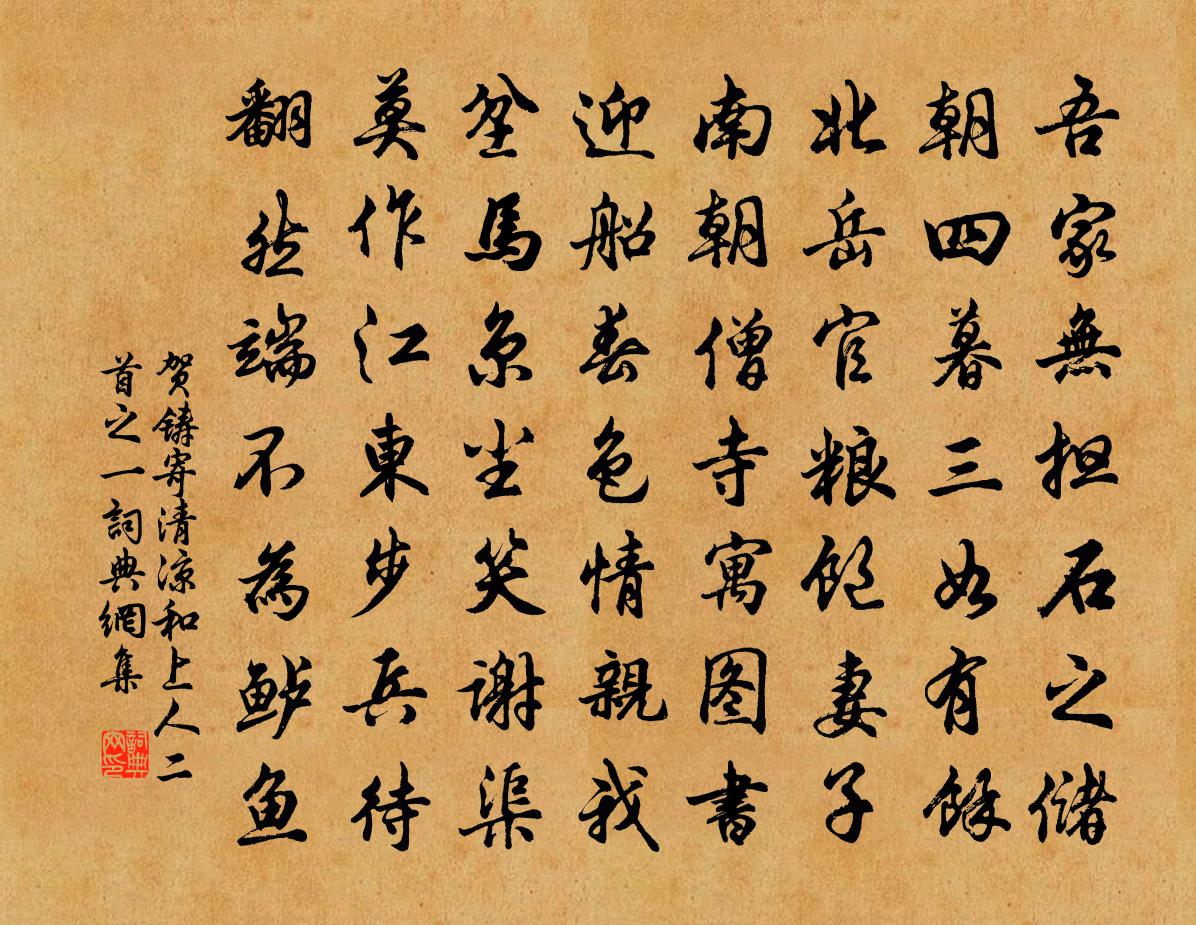 吾家無担石之儲
朝四暮三如有餘
北岳官粮飽妻子
南朝僧寺寓图書
迎船春色情親我
坌馬京尘笑謝渠
莫作江東步兵待
翻然端不為鲈魚
贺鑄寄清凉和上人二
首之一詞典網集
詞典网印